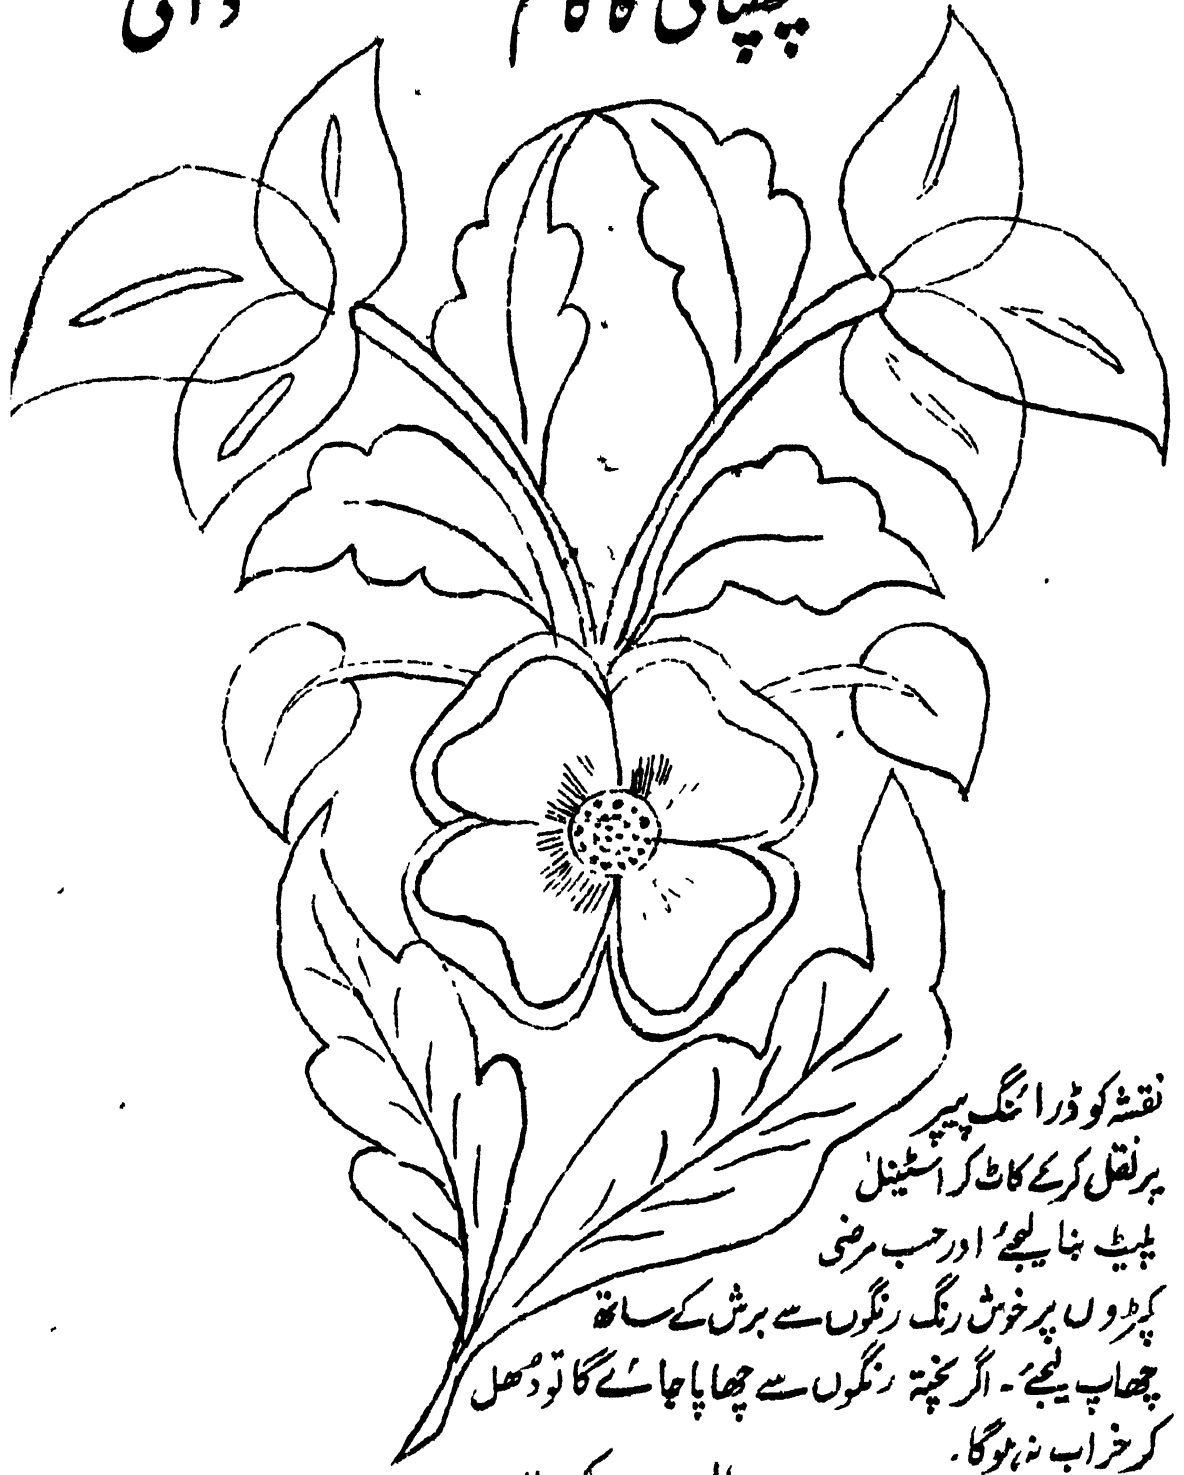 چھپائی کا کام
نقشہ کو ڈرائنگ پیپر
پر نقل کرکے کاٹ کر اسٹینل
پلیٹ بنا لیجئے اور حسب مرضی
کپڑوں پر خوش رنگ رنگوں سے برش کے ساتھ
چھاپ لیجئے۔ اگر پختہ رنگوں سے چھاپا جائے گا تو دُھل
کر خراب نہ ہوگا۔